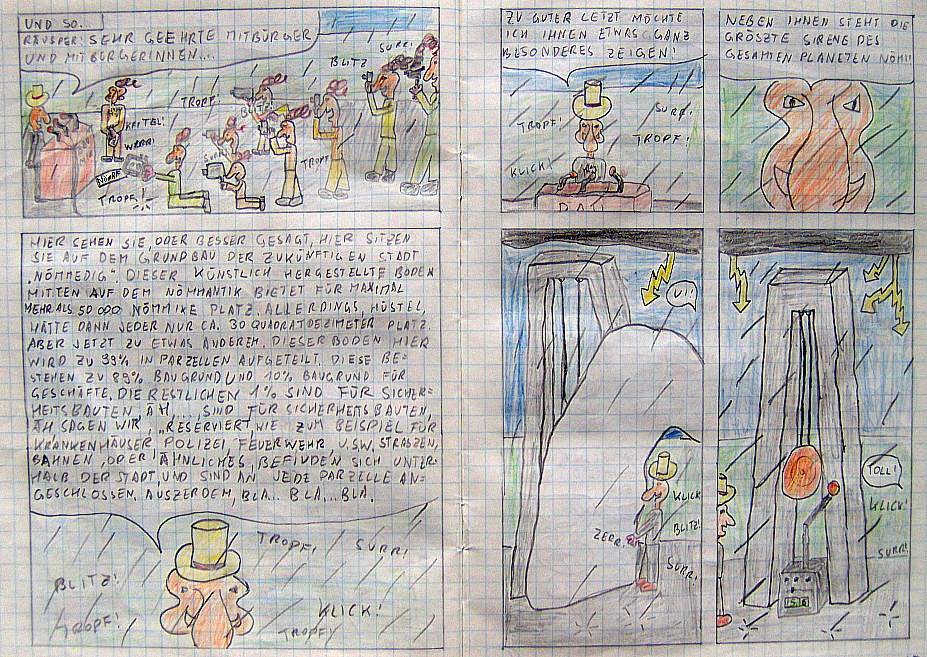 UND SO...
RÄUSPER! SEHR GEEHRTE MITBÜRGER
UND MITBÜRGERINNEN...
SURR!
BLITZ
TROPF
KRITZL!
WRRR!
SURR
TROPF
NÖMMF
TROPF!
HIER SEHEN SIE, ODER BESSER GESAGT, HIER SITZEN
SIE AUF DEM GRUNDBAU DER ZUKÜNFTIGEN STADT
„NÖMMEDIG“. DIESER KÜNSTLICH HERGESTELLTE BODEN
MITTEN AUF DEM NÖMMANTIK BIETET FÜR MAXIMAL
MEHR ALS 50 000 NÖMMIKE PLATZ. ALLERDINGS, HÜSTEL,
HÄTTE DANN JEDER NUR CA. 30 QUADRATDEZIMETER PLATZ.
ABER JETZT ZU ETWAS ANDEREM. DIESER BODEN HIER
WIRD ZU 99% IN PARZELLEN AUFGETEILT. DIESE BE-
STEHEN ZU 89% BAUGRUND UND 10% BAUGRUND FÜR
GESCHÄFTE. DIE RESTLICHEN 1% SIND FÜR SICHER-
HEITSBAUTEN, ÄH,..., SIND FÜR SICHERHEITSBAUTEN,
ÄH SAGEN WIR, „RESERVIERT“ WIE ZUM BEISPIEL FÜR
KRANKENHÄUSER, POLIZEI, FEUERWEHR U.S.W. STRASZEN,
BAHNEN, ODER ÄHNLICHES, BEFINDEN SICH UNTER-
HALB DER STADT, UND SIND AN JEDE PARZELLE AN-
GESCHLOSSEN, AUSZERDEM, BLA... BLA... BLA.
TROPF!
SURR!
BLITZ!
KLICK!
TROPF!
TROPF
ZU GUTER LETZT MÖCHTE
ICH IHNEN ETWAS GANZ
BESONDERES ZEIGEN!
TROPF!
SURR!
TROPF!
KLICK!
NEBEN IHNEN STEHT DIE
GRÖSZTE SIRENE DES
GESAMTEN PLANETEN NÖM!
UI!
KLICK
BLITZ!
ZERR!
SURR!
TOLL!
KLICK!
SURR!